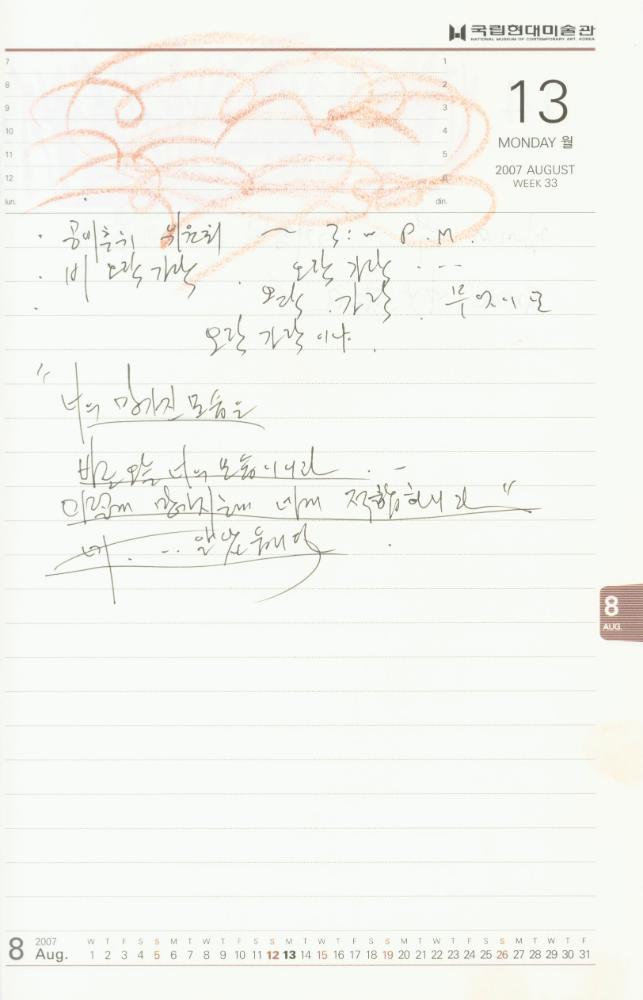 국립현대미술관
NATIONAL MUSEUM OF CONTEMPORARY ART, KOREA
7 1
8 2
9 3
10 4
11 5
12 6
lun. din.
13
MONDAY 월
2007 AUGUST
WEEK 33
· 위원회 ~ P.M.
· 비 오락가락 . 오락 가락 . --
· 오락 . 가락 . 무엇이
오락 가락 이냐 .
" 너의 망가진 모습은
너의 모습이니라 . -
너에 적합하니라 "
8
AUG.
8 2007 Aug.
W T F S S M T W T F S S M T W T F S S M T W T F S S M T W T F
1 2 3 4 5 6 7 8 9 10 11 12 13 14 15 16 17 18 19 20 21 22 23 24 25 26 27 28 29 30 31